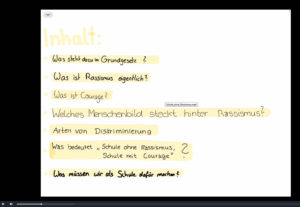 Inhalt:
Was steht dazu im Grundgesetz?
Was ist Rassismus eigentlich?
Was ist Courage?
Welches Menschenbild steckt hinter Rassismus?
Arten von Diskriminierung
Was bedeutet „Schule ohne Rassismus,
Schule mit Courage" ?
Was müssen wir als Schule dafür machen?